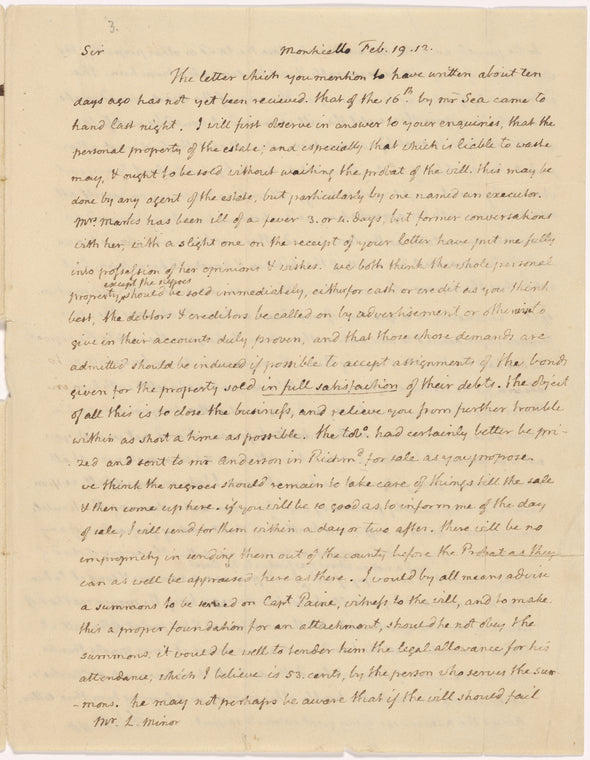 3.
Sir Monticello Feb. 19. 12.
The letter which you mention to have written about ten
days ago has not yet been recieved. that of the 16th. by mr Sea came to
hand last night. I will first observe in answer to your enquiries, that the
personal property of the estate; and especially that which is liable to waste
may, & ought to be sold without waiting the probat of the will. this may be
done by any agent of the estate, but particularly by one named an executor.
Mrs. Marks has been ill of a fever 3. or 4. days, but former conversations
with her, with a slight one on the receipt of your letter have put me fully
into possession of her opinions & wishes. we both think the whole personal
except the negroes
property, should be sold immediately, either for cash or credit as you think
best, the debtors & creditors be called on by advertisement or otherwise to
give in their accounts duly proven, and that those whose demands are
admitted should be induced if possible to accept assignments of the bonds
given for the property sold in full satisfaction of their debts. the object
of all this is to close the business, and relieve you from further trouble
within as short a time as possible. the tobo. had certainly better be pri-
-zed and sent to mr Anderson in Richmd. for sale as you propose.
we think the negroes should remain to take care of things till the sale
& then come up here. if you will be so good as to inform me of the day
of sale, I will send for them within a day or two after. there will be no
impropriety in sending them out of the county before the Probat as they
can as well be appraised here as there. I would by all means advise
a summons to be served on Capt Paine, witness to the will, and to make
this a proper foundation for an attachment, should he not obey the
summons. it would be well to tender him the legal allowance for his
attendance, which I believe is 53. cents, by the person who serves the sum-
-mons. he may not perhaps be aware that if the will should fail
Mr. L. Minor